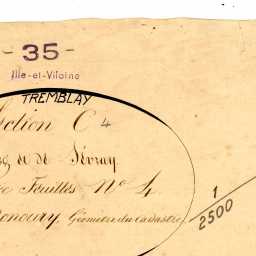 - 35 -
Ille-et-Vilaine
TREMBLAY
Section C 4
de Sévray
Feuilles No 4
Géomètre du Cadastre
1
2500